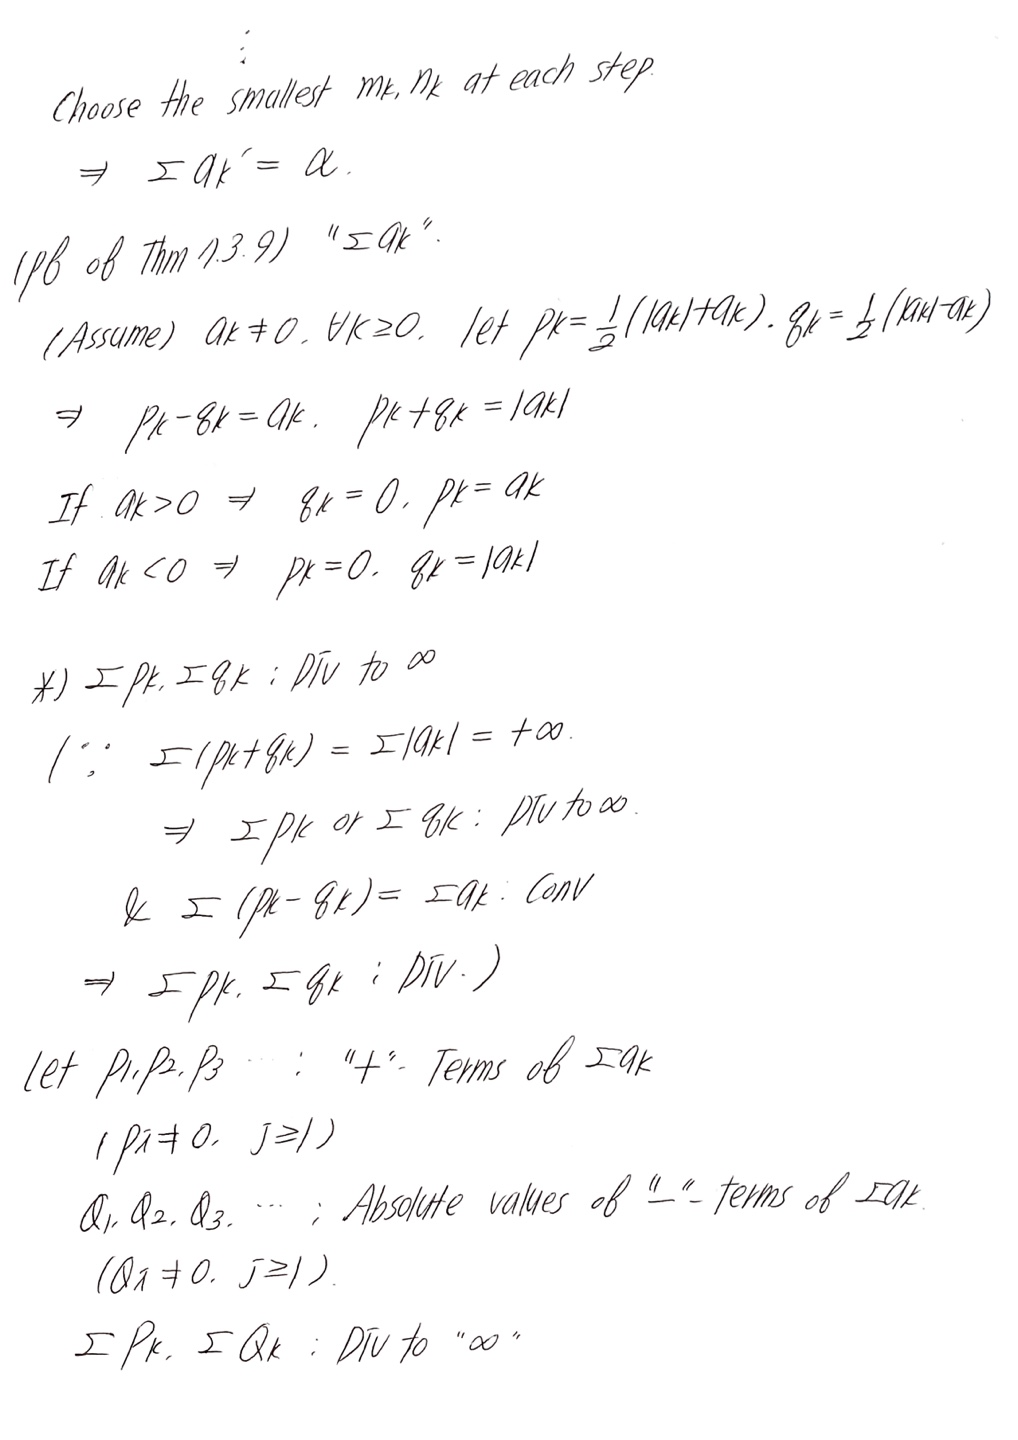 ⋮
Choose the smallest mk, nk at each step.
⇒ Σ ak′ = α.
(pf of Thm 7.3.9) "Σ ak".
(Assume) ak ≠ 0. ∀k≥0. let pk = 1/2 (|ak|+ak). qk = 1/2 (|ak|-ak)
⇒ pk - qk = ak. pk + qk = |ak|
If ak > 0 ⇒ qk = 0. pk = ak
If ak < 0 ⇒ pk = 0. qk = |ak|
*) Σ pk, Σ qk : Div to ∞
(∵ Σ(pk+qk) = Σ|ak| = +∞.
⇒ Σ pk or Σ qk : Div to ∞.
& Σ (pk - qk) = Σ ak : Conv
⇒ Σ pk, Σ qk : Div.)
Let P1, P2, P3 ⋯ : "+"- Terms of Σ ak
(Pi ≠ 0. j≥1)
Q1, Q2, Q3, ⋯ ; Absolute values of "-"- terms of Σ ak.
(Qi ≠ 0. j≥1).
Σ Pk, Σ Qk : Div to "∞"